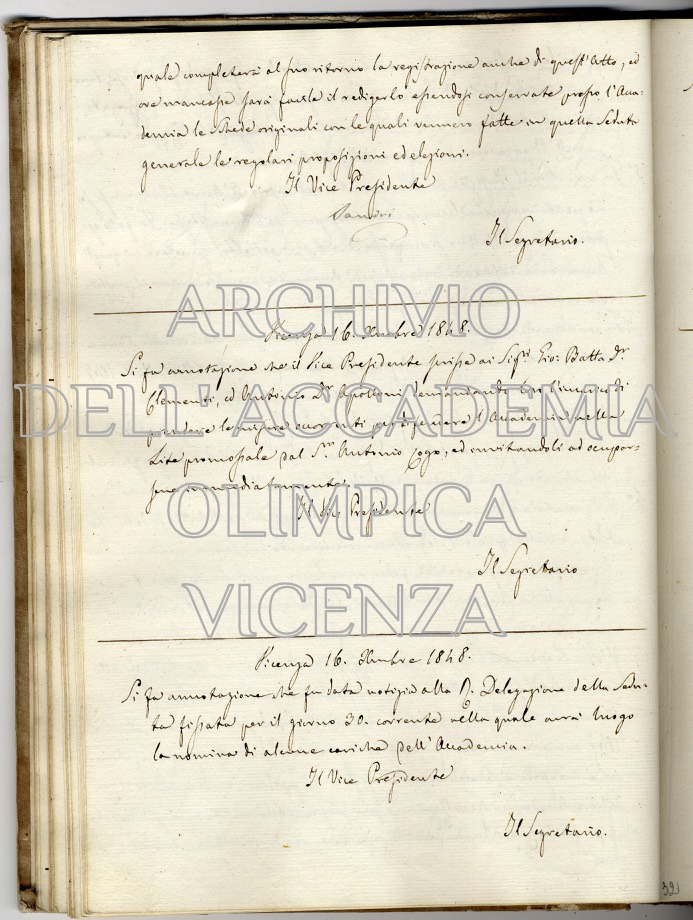 quale completerà al suo ritorno la registrazione anche di quest'Atto, ed
ove mancasse sarà facile il redigerlo essendosi conservate presso l'Acca-
demia le schede originali con le quali vennero fatte in quella Seduta
generale le regolari proposizioni ed elezioni.
Il Vice Presidente
Il Segretario.
ARCHIVIO
Vicenza 16. Xmbre 1848.
Si fa annotazione che il Vice Presidente scrisse ai Sigri Gio: Batta Dr
DELL'ACCADEMIA
Clementi, ed Antonio Dr Apolloni demandando loro l'incarico di
prendere le misure occorrenti per difendere l'Accademia nella
Lite promossale dal Sr Antonio Gogo, ed invitandoli ad occupar-
sene immediatamente.
OLIMPICA
Il Vice Presidente
Il Segretario
VICENZA
Vicenza 16. Xmbre 1848.
Si fa annotazione che fu data notizia alla R. Delegazione della Sedu-
ta fissata per il giorno 30. corrente nella quale avrà luogo
la nomina di alcune cariche dell'Accademia.
Il Vice Presidente
Il Segretario.